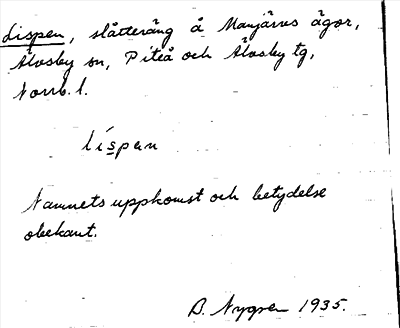 Lispen, slåtteräng å Manjärvs ägor,
Älvsby sn, Piteå och Älvsby tg,
Norrb. l.
lispen
Namnets uppkomst och betydelse
obekant.
B. Nygren 1935.